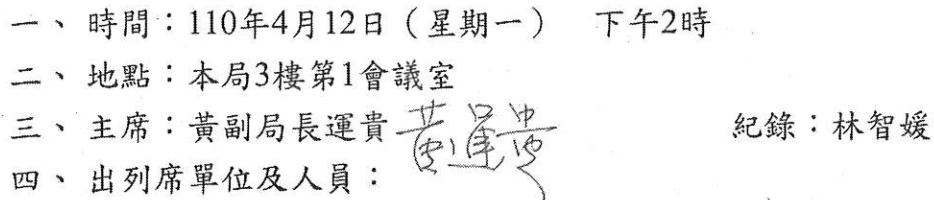 一、 時間：110年4月12日（星期一） 下午2時
二、 地點：本局3樓第1會議室
三、 主席：黃副局長運貴 黃運貴 紀錄：林智媛
四、 出列席單位及人員：